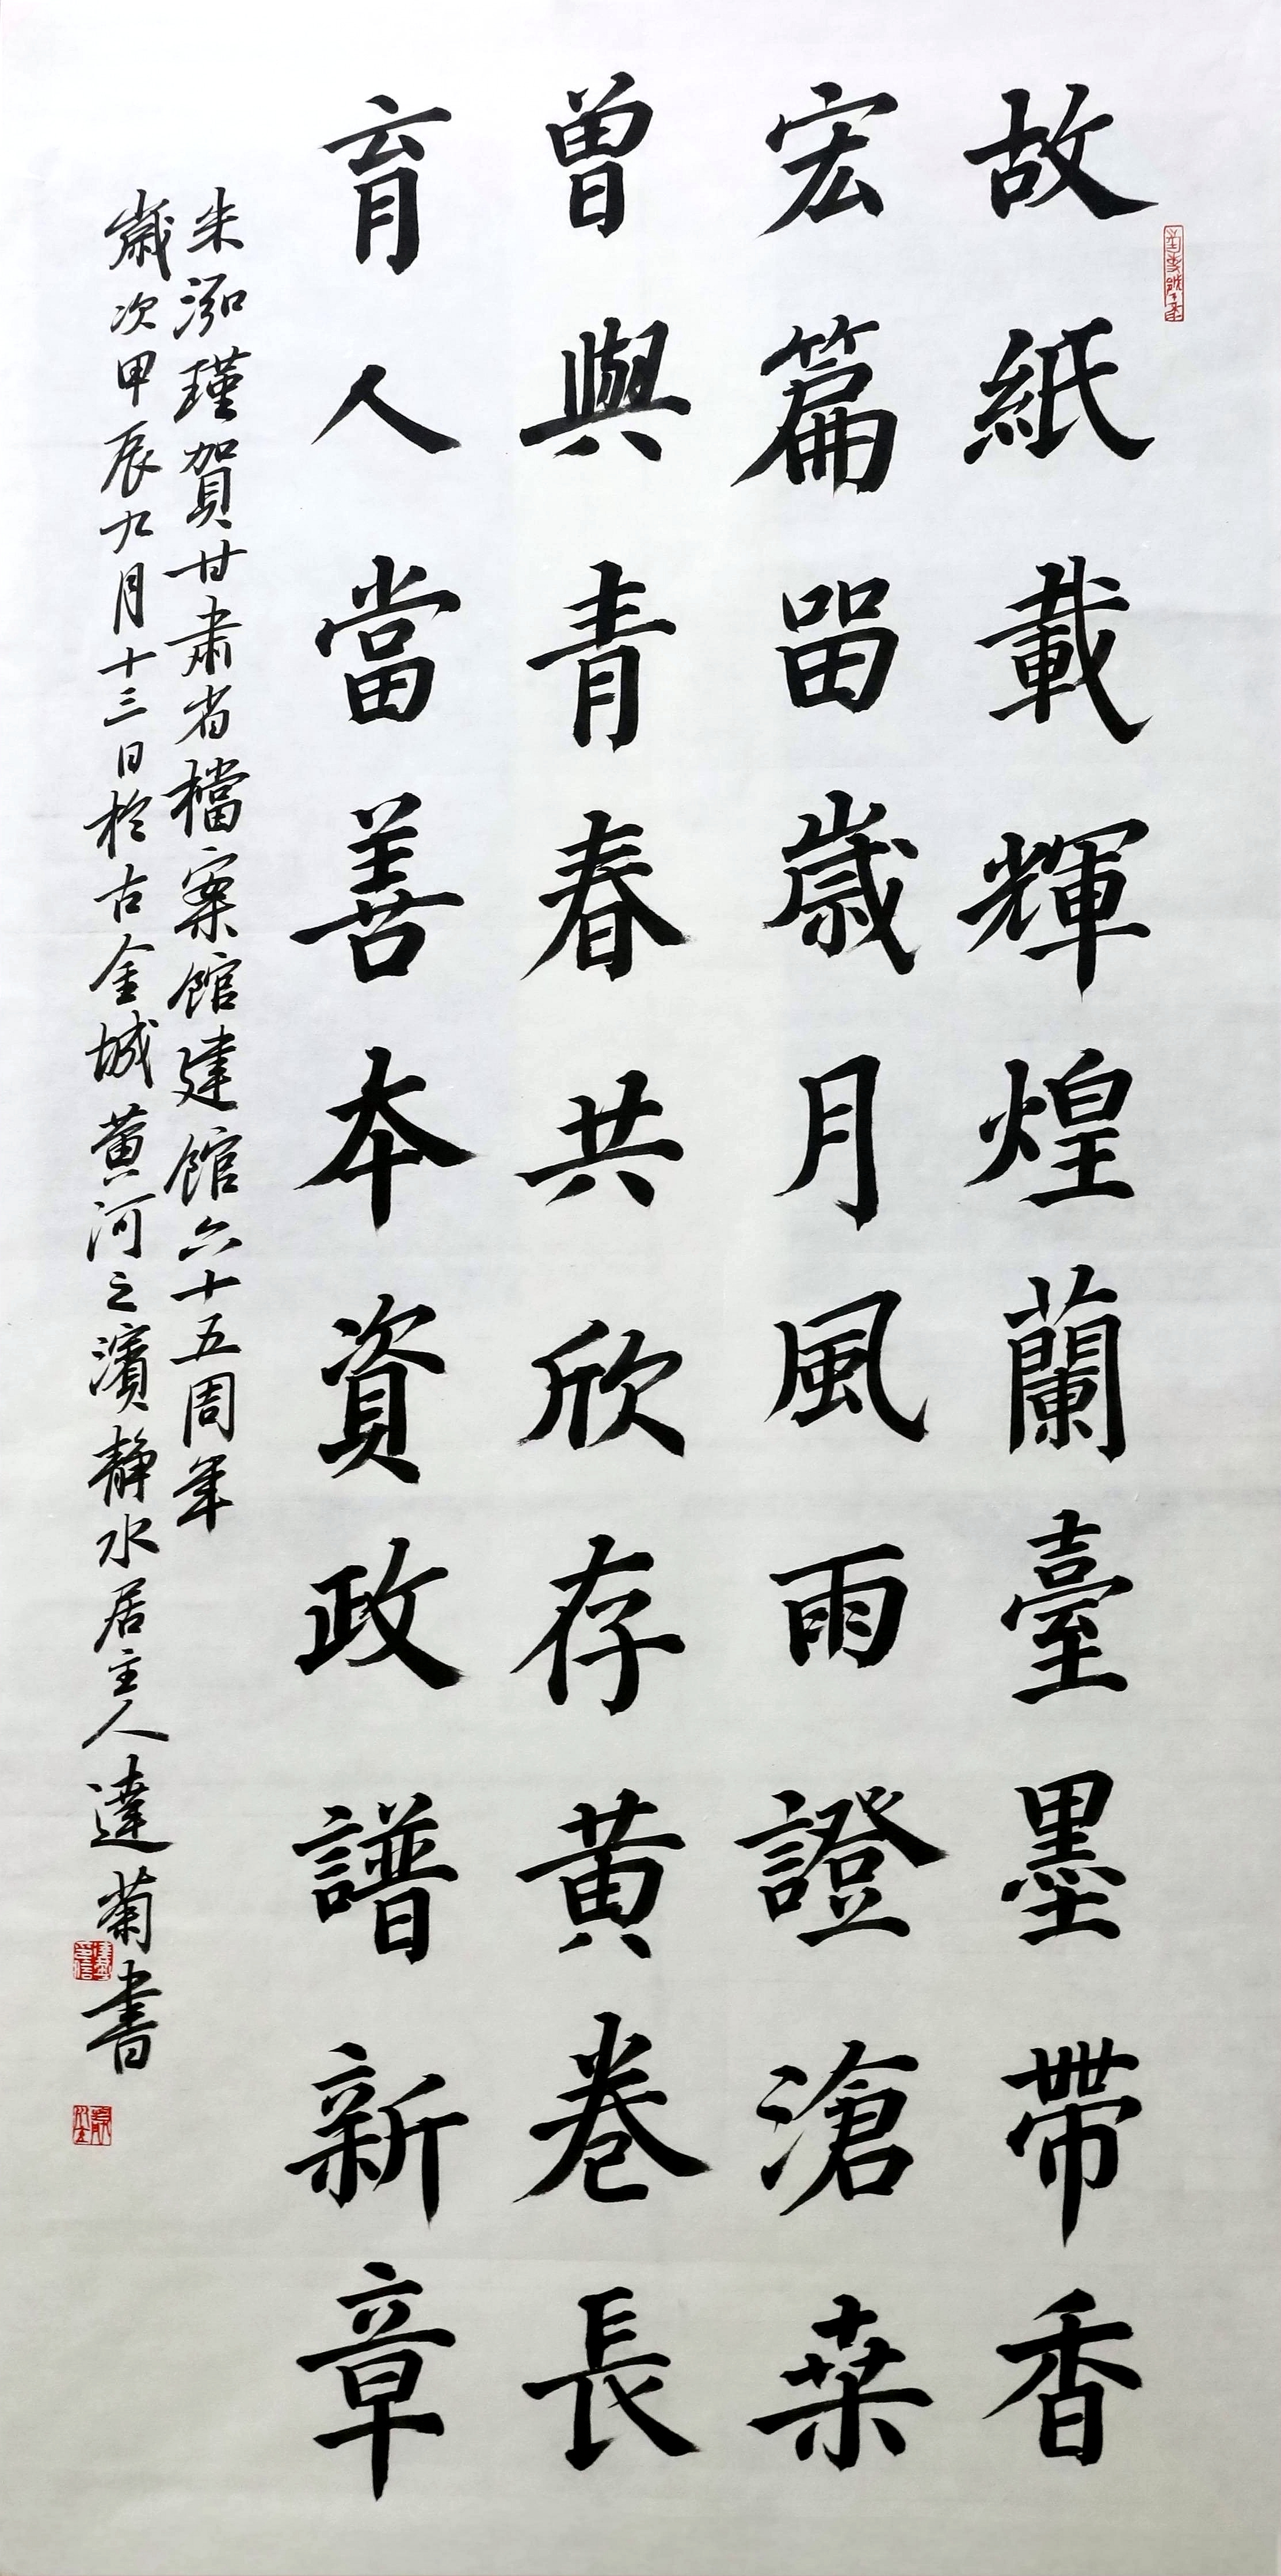 故紙載輝煌蘭臺墨帶香
宏篇畱歲月風雨證滄桒
曾與青春共欣存黄卷長
育人當善本資政譜新章
朱泓瑾賀甘肅省檔案館建館六十五周年
歲次甲辰九月十三日於古金城黄河之濱靜水居主人達菊書